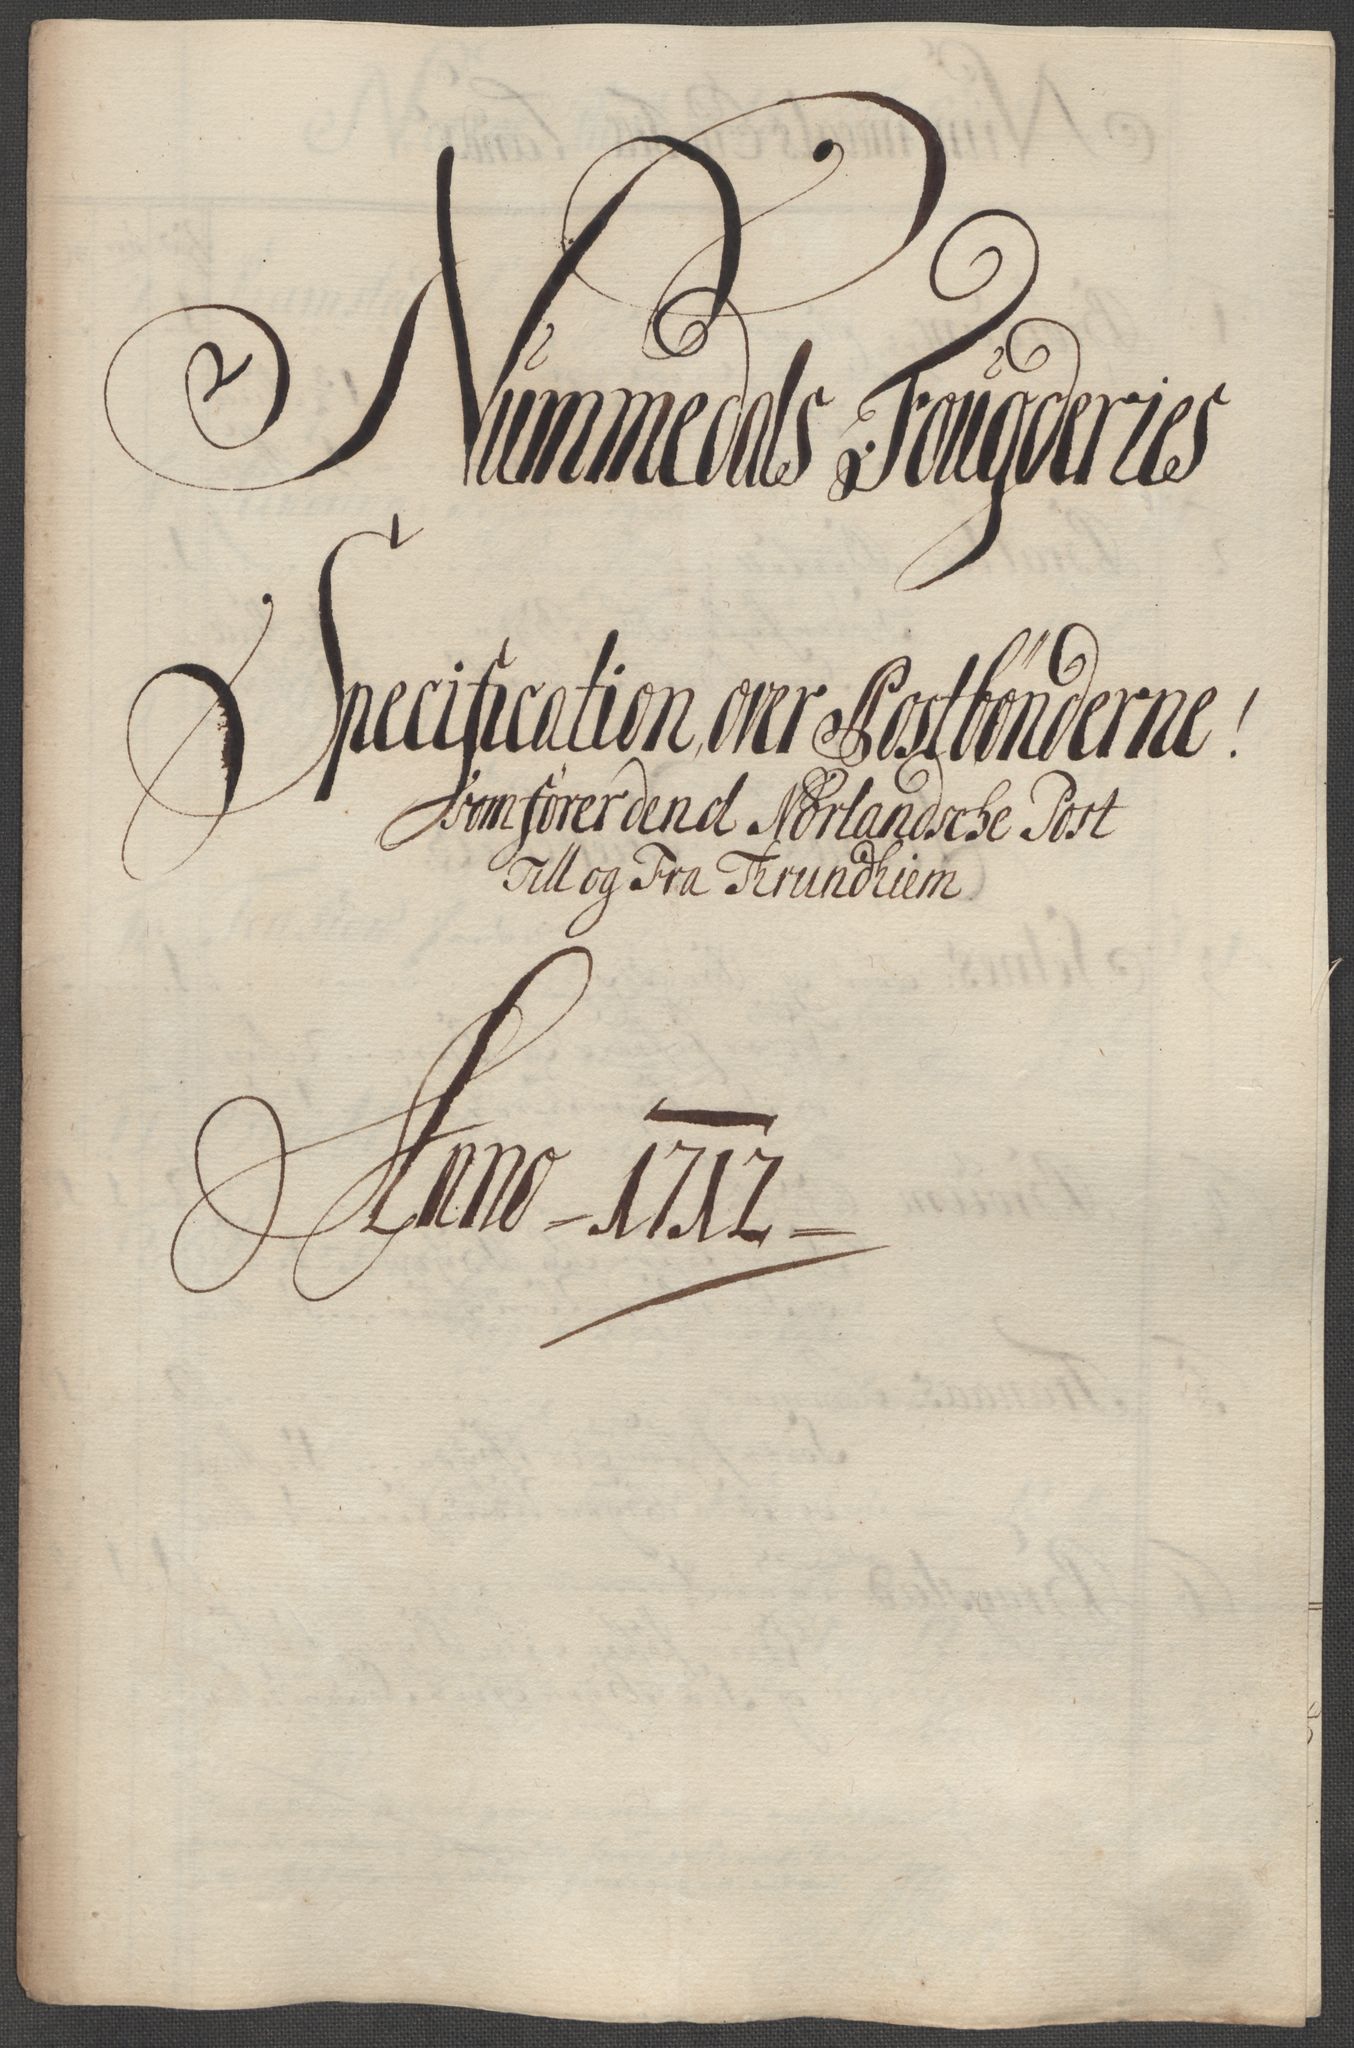 Nummedals Fougderies
Specification, over Postbönderne!
som förer dend Nörlandsche Post
Till og Fra Thrundhiem
Anno - 1712 =